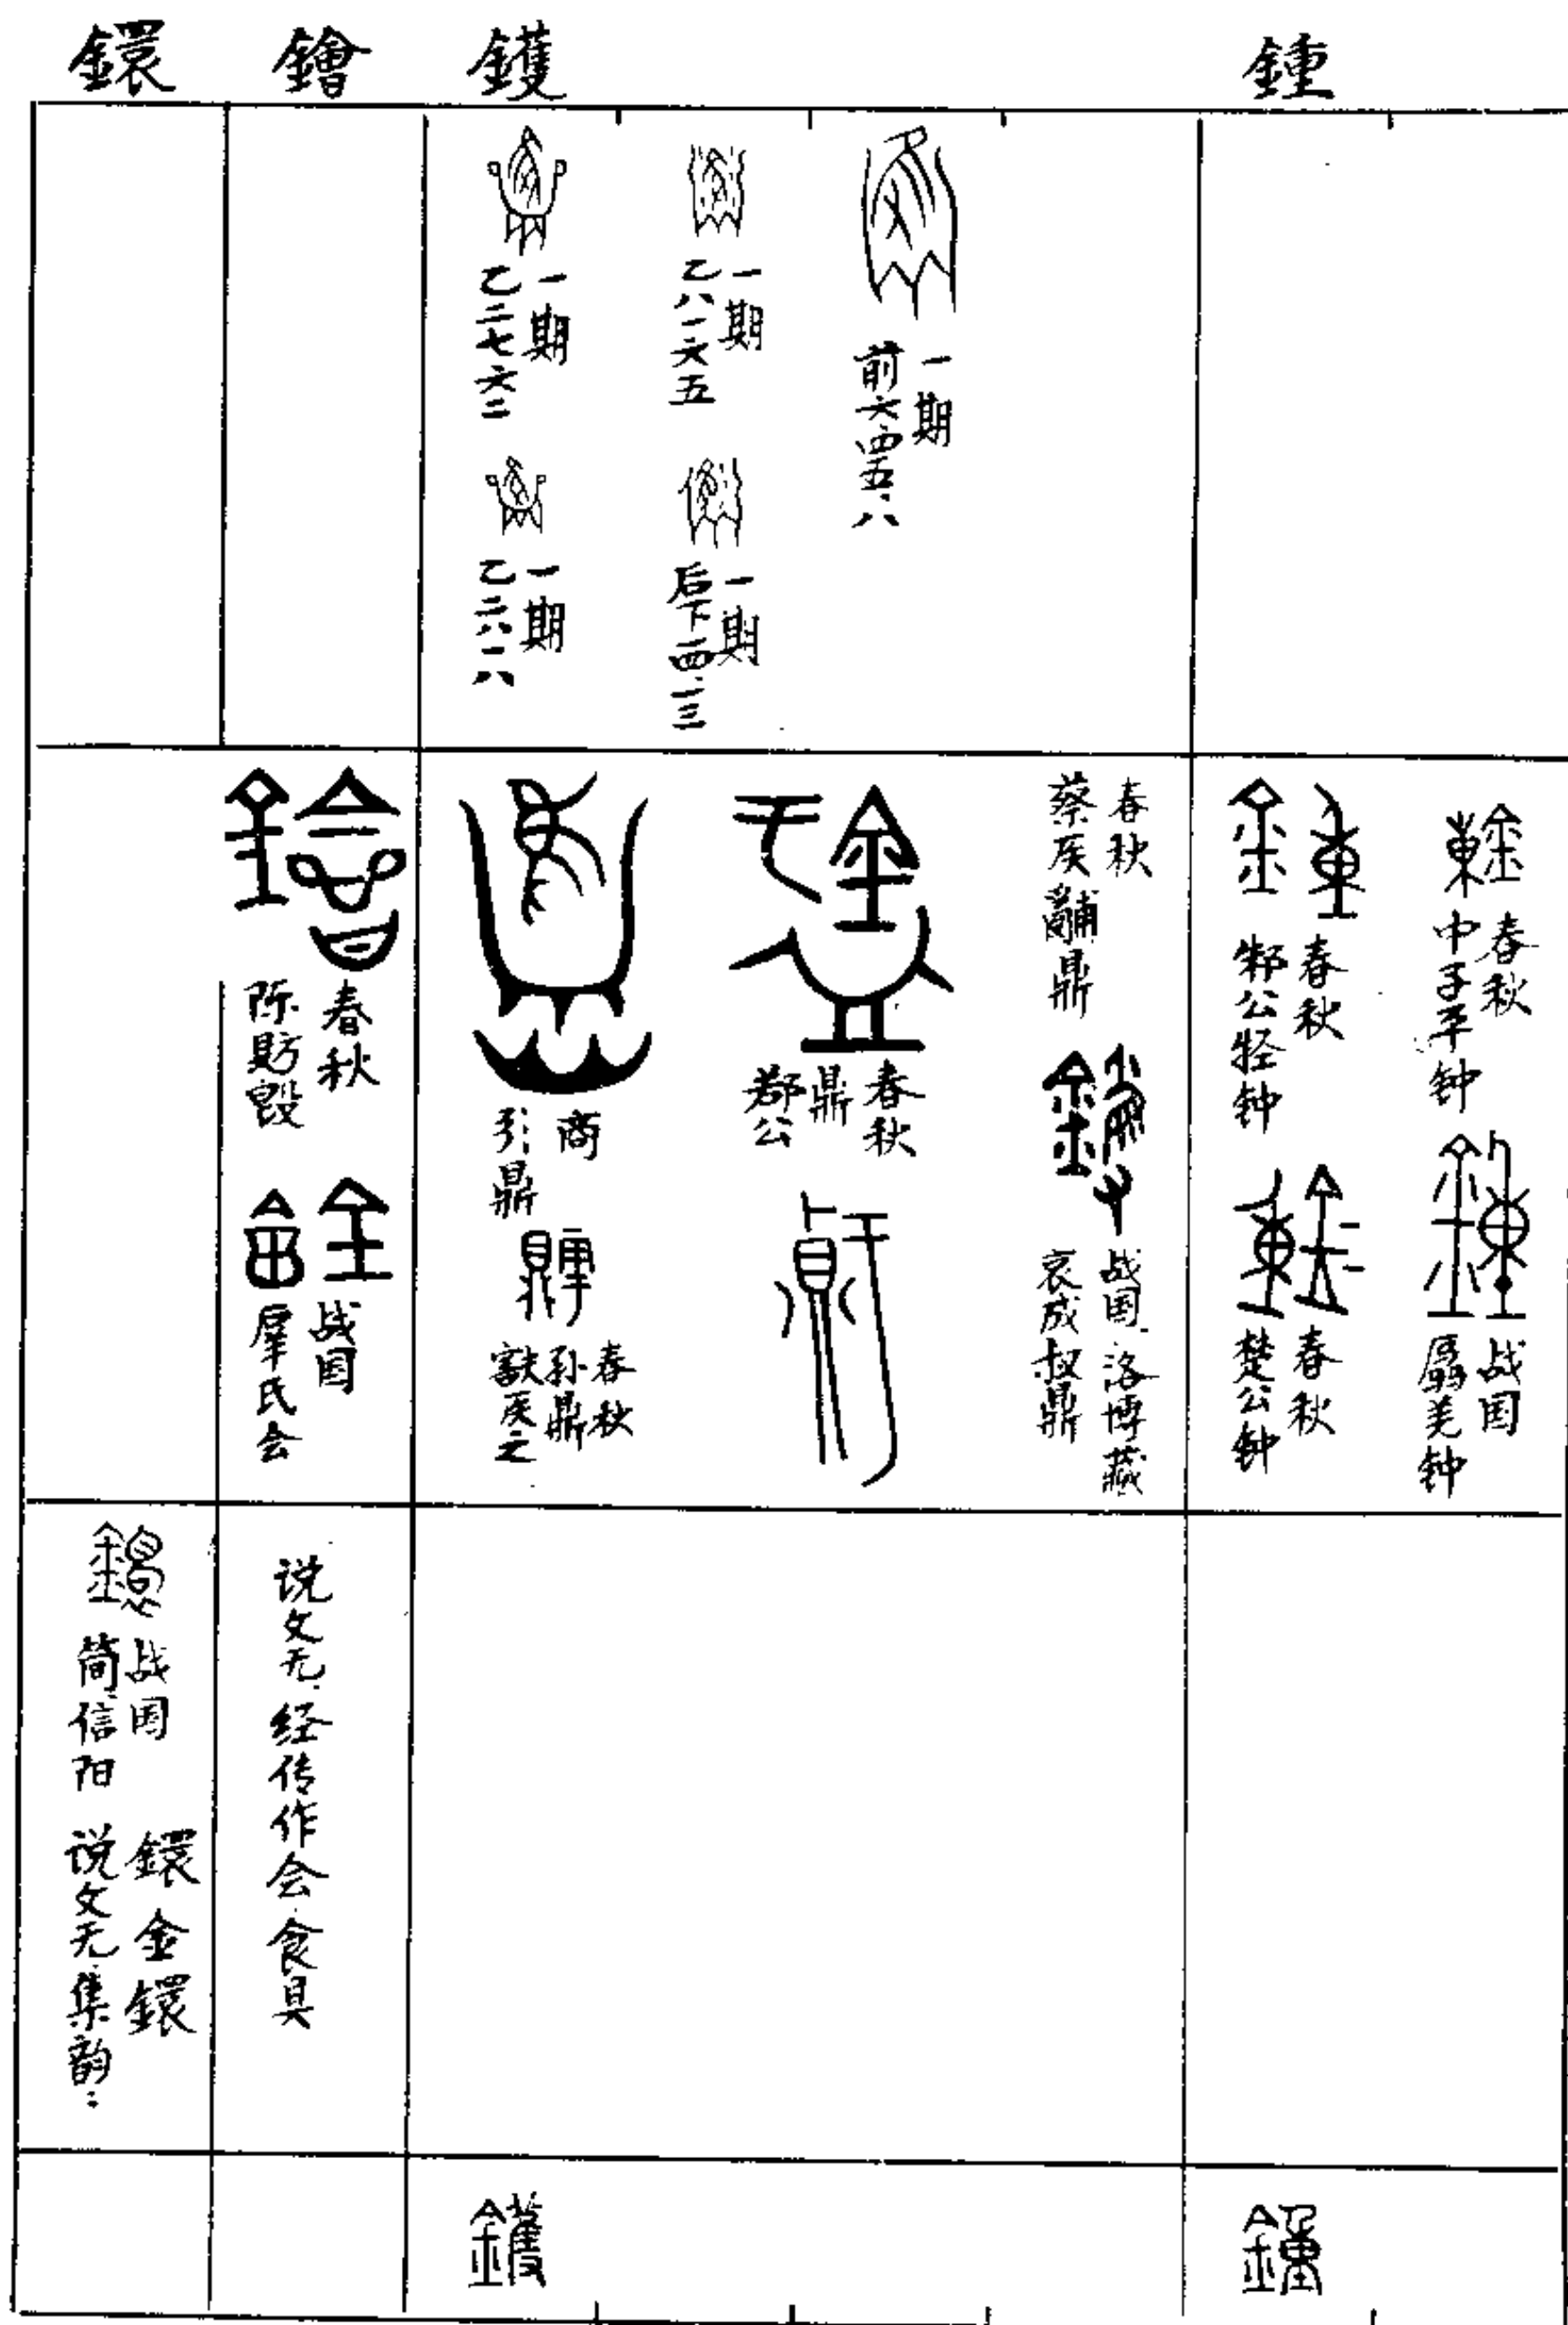 鍾
春秋
中子平钟
战国
屭羌钟
春秋
邾公牼钟
春秋
楚公钟
鍾
鑊
一期
前六四五·八
一期
乙八一六五
一期
后下二四·一三
一期
乙二七六二
一期
乙二八一八
春秋
蔡侯𬴂鼎
战国·洛博藏
哀成叔鼎
春秋
鼎
郡公
商
引鼎
春秋
孙鼎
㝬侯之
鑊
鐀
春秋
陈𧵊𣪘
战国
㢑氏会
说文无·经传作会·食具
鐶
战国
简信阳
鐶金鐶
说文无·集韵: